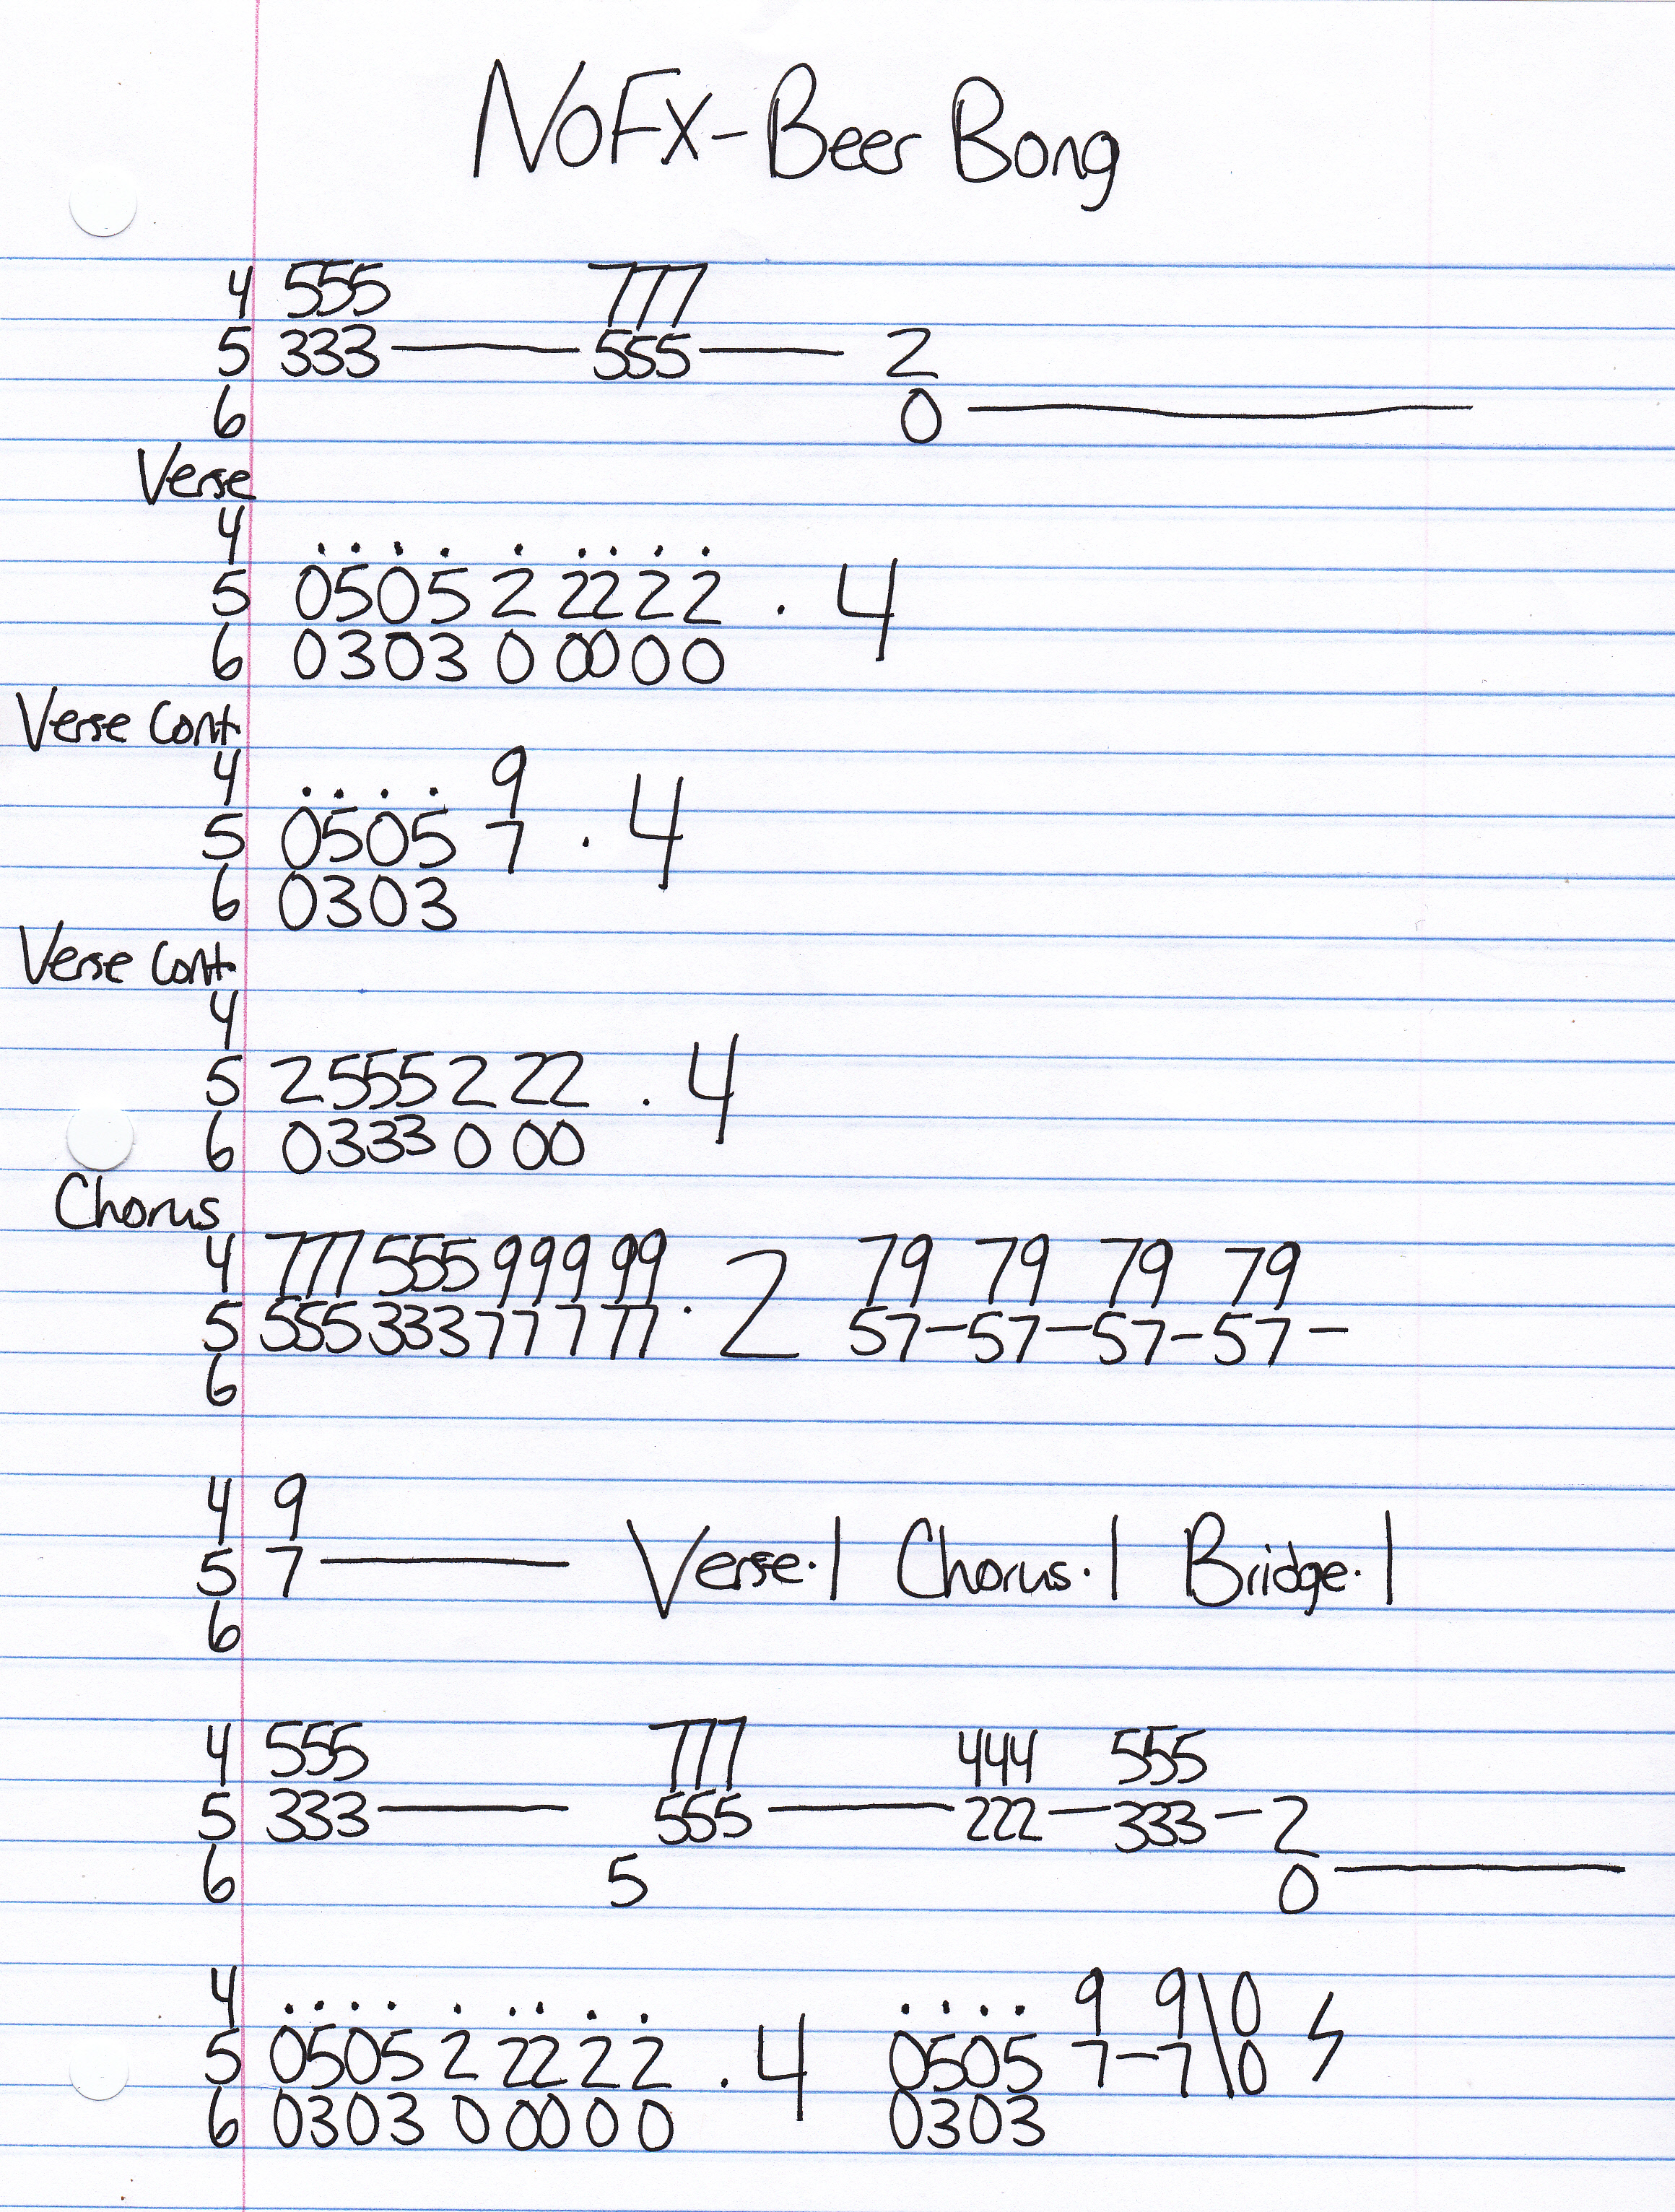 NOFX-Beer Bong
4 555 777
5 333 — 555 — 2
6 0 —
Verse
4 . . . . . . . . .
5 0505 2 22 2 2 . 4
6 0303 0 00 0 0
Verse Cont.
4 . . . . 9
5 0505 7 . 4
6 0303
Verse Cont.
4
5 2555 2 22 . 4
6 0333 0 00
Chorus
4 777 555 999 99 79 79 79 79
5 555 333 777 77 . 2 57-57-57-57-
6
4 9
5 7 — Verse.1 Chorus.1 Bridge.1
6
4 555 777 444 555
5 333 — 555 — 222-333-2
6 5 0 —
4 . . . . . . . . . . . . . 9 9\0
5 0505 2 22 2 2 . 4 0505 7-7\0
6 0303 0 00 0 0 0303